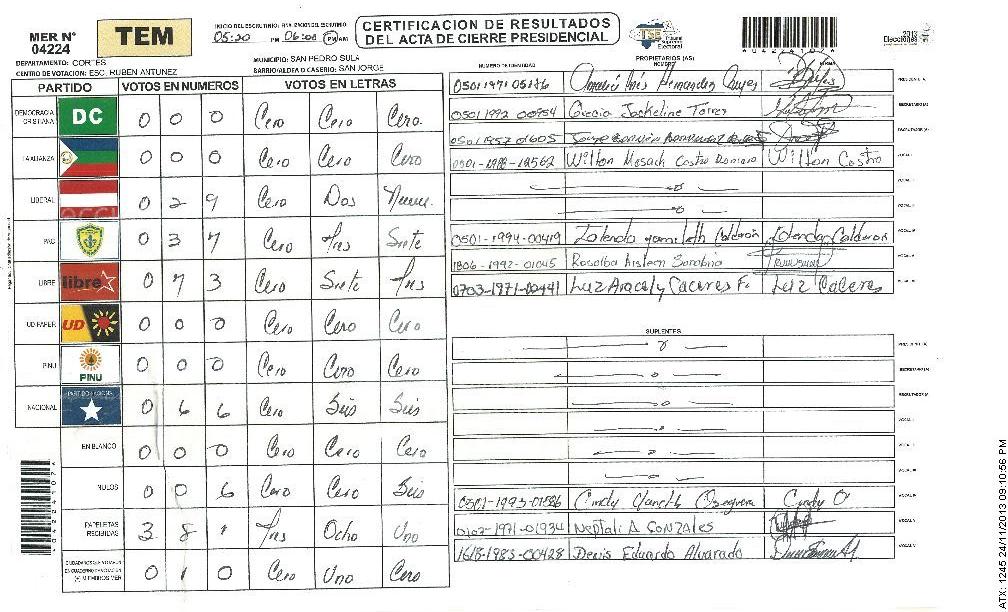 MER N° 04224
TEM
INICIO DEL ESCRUTINIO: 05:20 PM 06:00 PM
CERTIFICACION DE RESULTADOS
DEL ACTA DE CIERRE PRESIDENCIAL
TSE Tribunal Supremo Electoral
Elecciones
DEPARTAMENTO: CORTES
MUNICIPIO: SAN PEDRO SULA
CENTRO DE VOTACION: ESC. RUBEN ANTUNEZ
BARRIO/ALDEA O CASERIO: SAN JORGE
PARTIDO VOTOS EN NUMEROS VOTOS EN LETRAS
DEMOCRACIA CRISTIANA DC 0 0 0 Cero Cero Cero
FA ALIANZA 0 0 0 Cero Cero Cero
LIBERAL 0 2 9 Cero Dos Nueve
PAC 0 3 7 Cero Tres Siete
LIBRE libre 0 7 3 Cero Siete Tres
UD FAPER UD 0 0 0 Cero Cero Cero
PINU PINU 0 0 0 Cero Cero Cero
NACIONAL 0 6 6 Cero Seis Seis
EN BLANCO 0 0 0 Cero Cero Cero
NULOS 0 0 6 Cero Cero Seis
PAPELETAS RECIBIDAS 3 8 1 Tres Ocho Uno
0 1 0 Cero Uno Cero
NUMERO DE IDENTIDAD PROPIETARIOS (AS) NOMBRE
0501 1971 05186 Hernandez PRESIDENTE (A)
0501 1992 00954 Grecia Jackeline Torres SECRETARIO (A)
0501 1957 01605 ESCRUTADOR (A)
0501-1988-12562 Wilton Mesach Castro Wilton Castro VOCAL I
VOCAL II
VOCAL III
0501-1994-00419 Yolanda Yamileth Calderon Yolanda Calderon VOCAL IV
1806-1992-01045 Rosalba VOCAL V
0703-1971-00441 Luz Aracely Caceres F. Luz Caceres
SUPLENTES
PRESIDENTE (A)
SECRETARIO (A)
ESCRUTADOR (A)
VOCAL I
VOCAL II
VOCAL III
0501-1993-01586 Cindy Cindy O VOCAL IV
0107-1971-01934 Neptali A GONZALES VOCAL V
1618-1983-00428 Denis Eduardo Alvarado
04224107
ATX: 1245 24/11/2013 09:10:56 PM